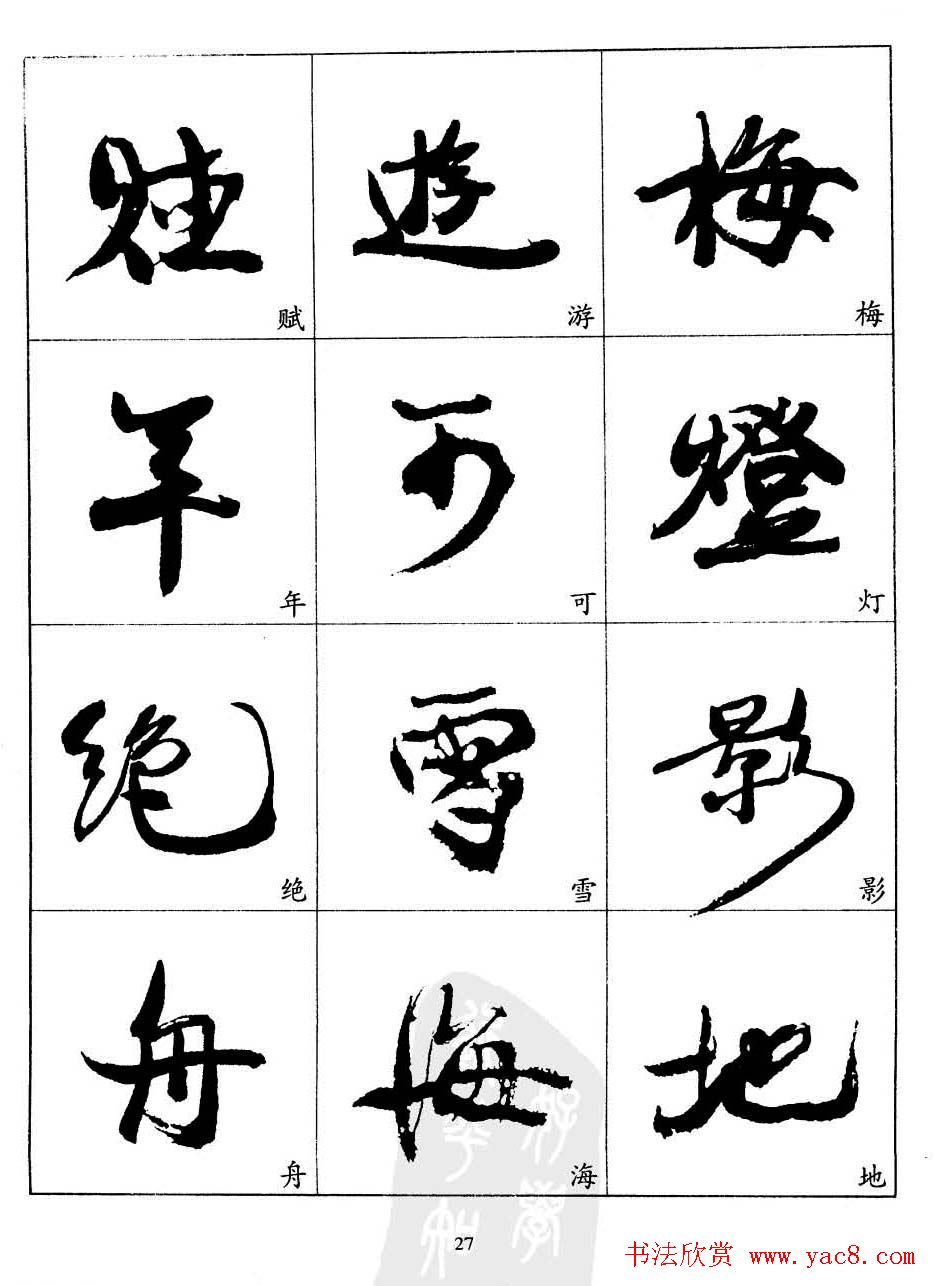 赋 遊 梅
赋 游 梅
年 可 燈
年 可 灯
绝 雪 影
绝 雪 影
舟 海 地
舟 海 地
27
书法欣赏 www.yac8.com